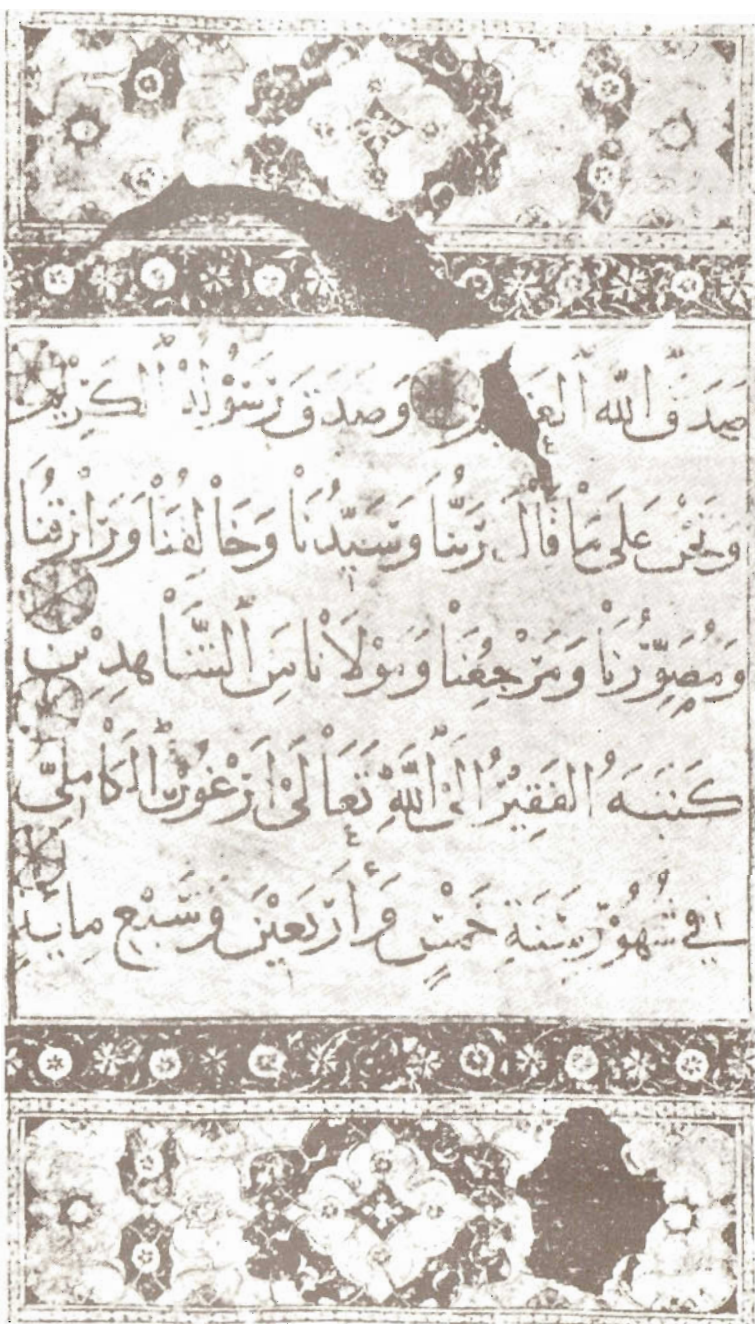 صَدَقَ اللّٰه العظيم وَصَدَقَ رَسُولُهُ الْكَرِيْمُ
وَنَحْنُ عَلٰى مَاْ قَاْلَ رَبُّنَاْ وَسَيِّدُنَاْ وَخَاْلِقُنَاْ وَرَاْزِقُنَاْ
وَمُصَوِّرُنَاْ وَمَرْجِعُنَاْ وَمَوْلَاْنَا مِنَ الشَّاْهِدِيْنَ
كَتَبَهُ الفَقِيْرُ اِلَى اللّٰهِ تَعَاْلَىْ اَرْغُوْنُ الْكَاْمِلِىُّ
فِيْ شُهُوْرِ سَنَةِ خَمْسٍ وَأَرْبَعِيْنَ وَسَبْعِ مِائَةٍ